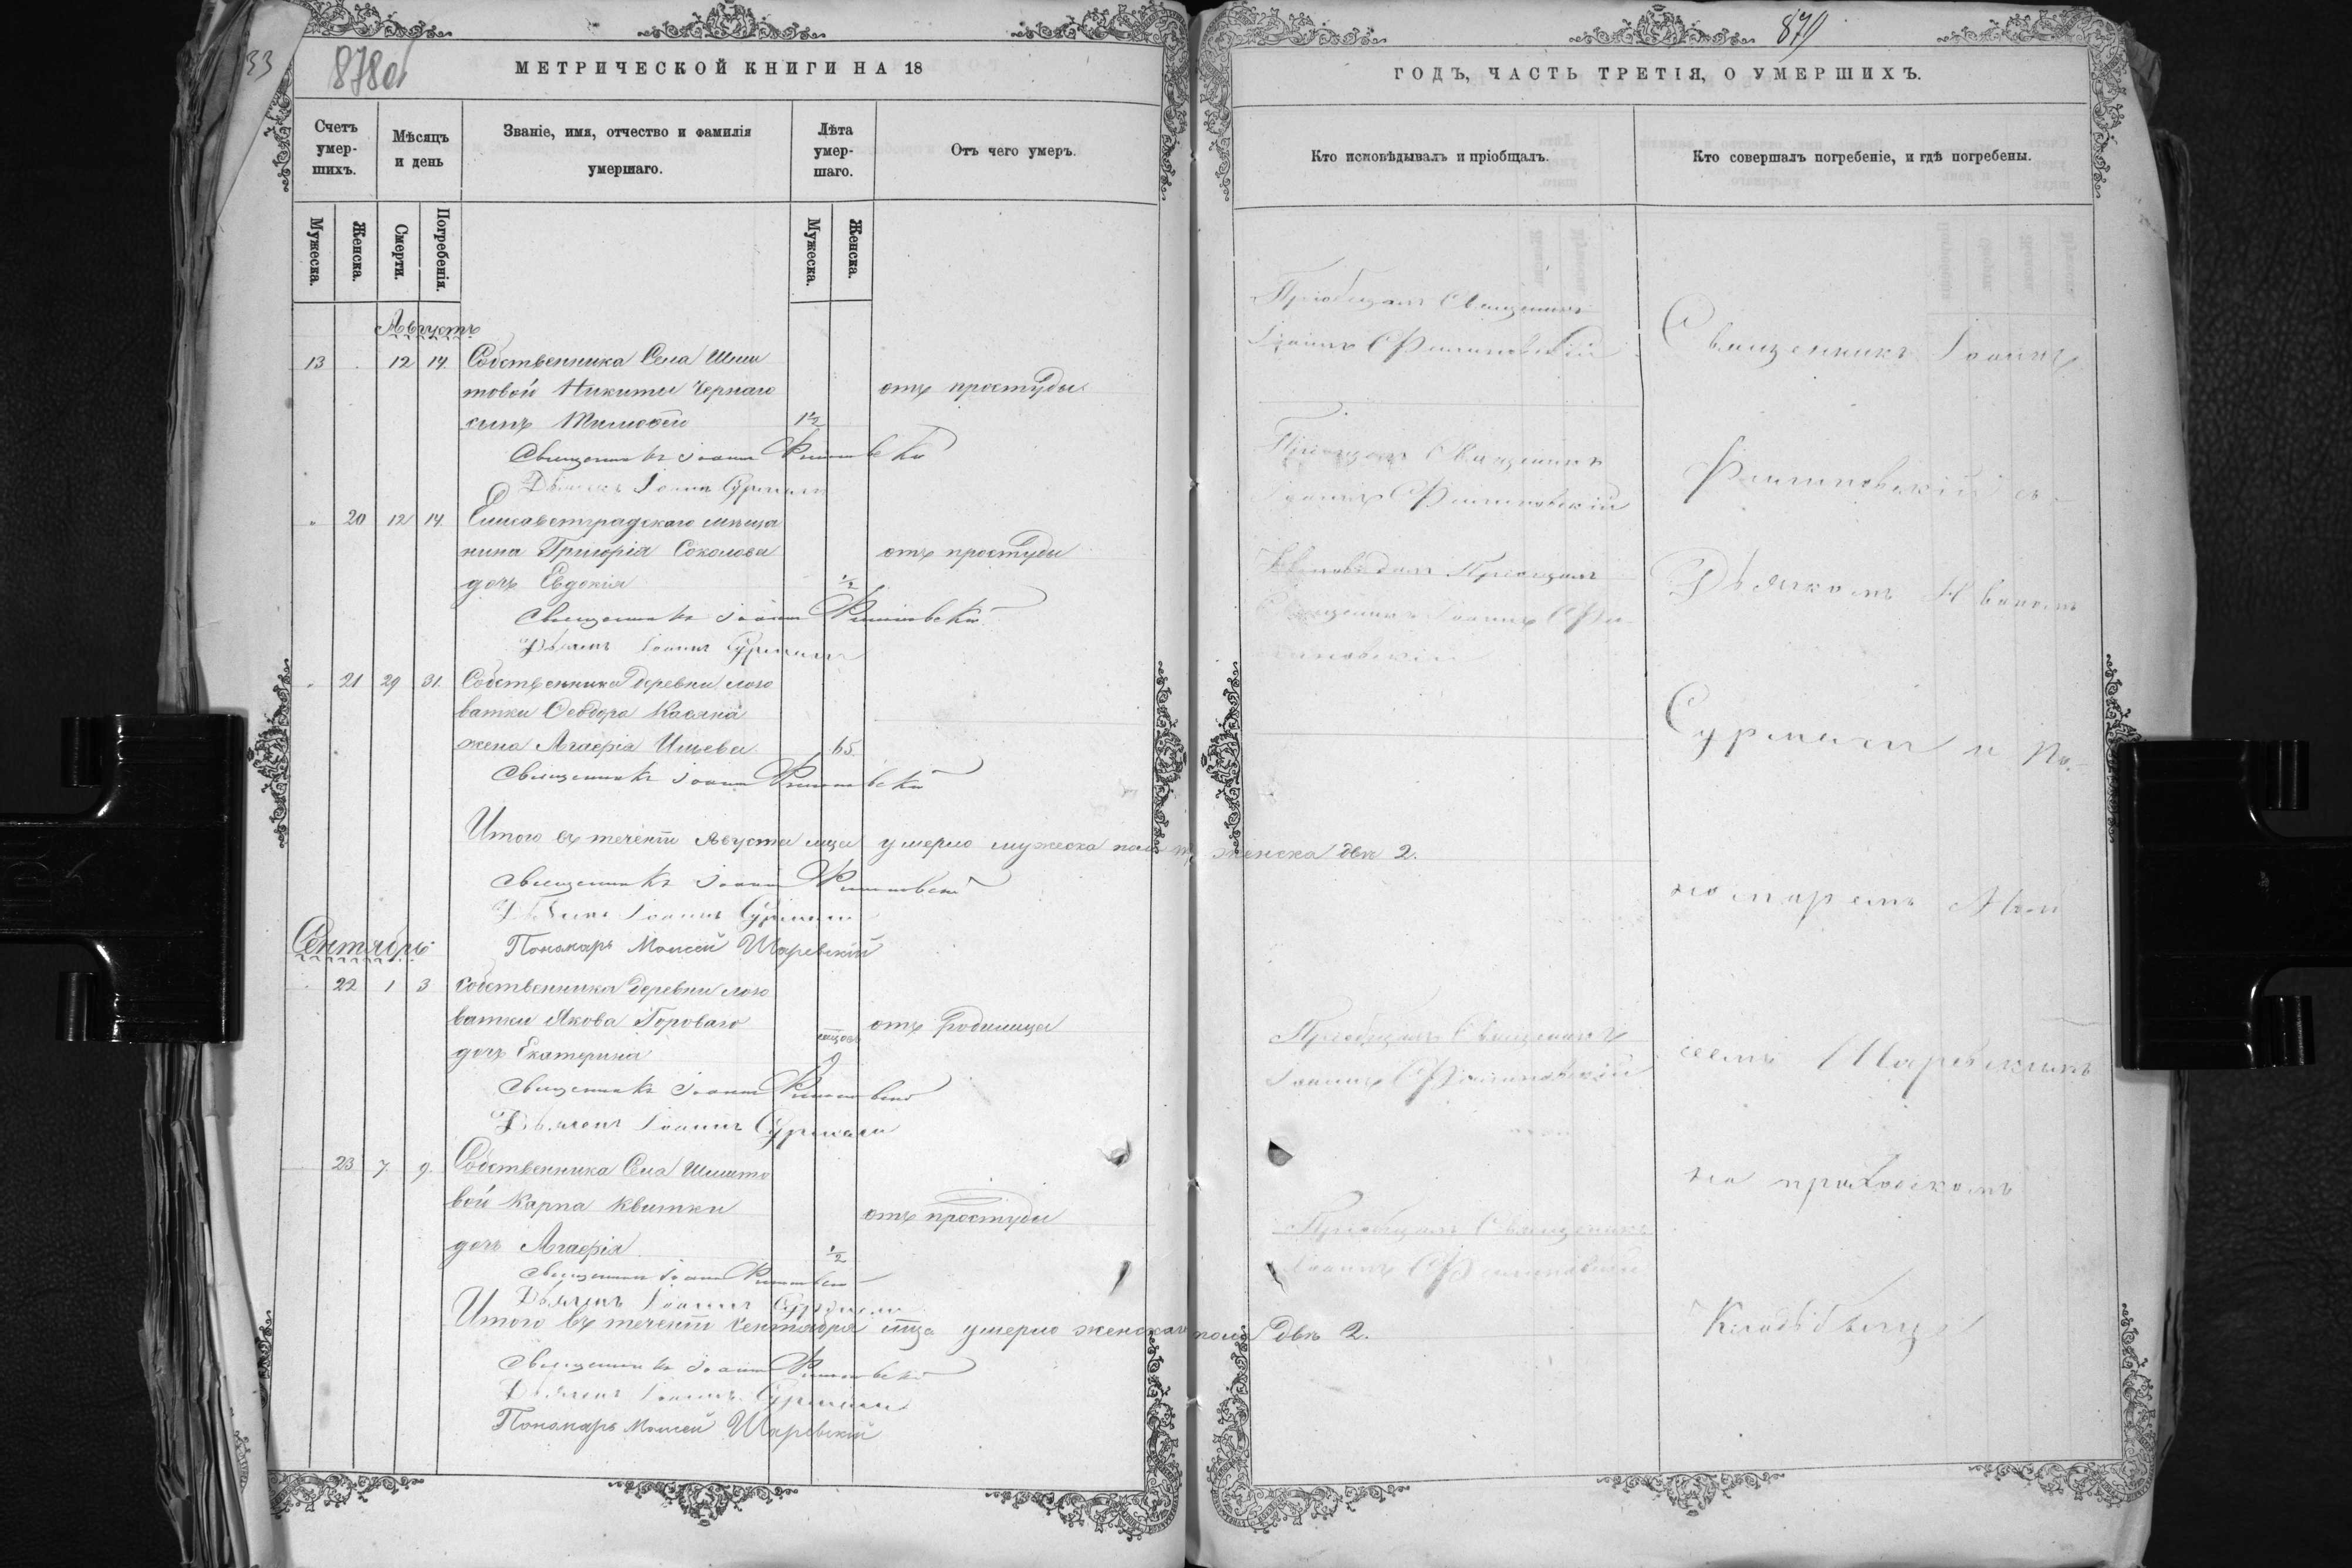 33
878об
МЕТРИЧЕСКОЙ КНИГИ НА 18
Счетъ умер-шихъ.
Мѣсяцъ и день
Званіе, имя, отчество и фамилія умершаго.
Лѣта умер-шаго.
Отъ чего умеръ.
Мужеска.
Женска.
Смерти.
Погребенія.
Мужеска.
Женска.
Августъ
13 12 14 Собственника Села Шма
товой Никиты Чернаго отъ простуды
сынъ Тимофей 1 1/2
Священникъ Іоаннъ Филиповскій
Дьячекъ Іоаннъ Сурмили
" 20 12 14 Елисаветградскаго мѣща
нина Григорія Соколова отъ простуды
дочь Евдокія 1/2
Священникъ Іоаннъ Филиповскій
Дьячекъ Іоаннъ
" 21 29 31 Собственника деревни Лозо
ватки Ѳеодора Касяна
жена Агафія Ильева 65
Священникъ Іоаннъ Филиповскій
Итого въ теченіи Августа мца умерло мужеска пола женска двѣ 2.
Священникъ Іоаннъ Филиповскій
Дьячекъ Іоаннъ
Пономарь Моисей Шаревскій
Сентябрь
22 1 3 Собственника деревни Лозо
ватки Якова Горового отъ родимца
дочь Екатерина
Священникъ Іоаннъ Филиповскій
Дьячекъ Іоаннъ
23 7 9 Собственника Села Шмато
вой Карпа Квитки отъ простуды
дочь Агафія 1/2
Священникъ Іоаннъ Филиповскій
Дьячекъ Іоаннъ
Итого въ теченіи Сентября мца умерло женскаго пола двѣ 2.
Священникъ Іоаннъ Филиповскій
Дьячекъ Іоаннъ
Пономарь Моисей Шаревскій
879
ГОДЪ, ЧАСТЬ ТРЕТІЯ, О УМЕРШИХЪ.
Кто исповѣдывалъ и пріобщалъ.
Кто совершалъ погребеніе, и гдѣ погребены.
Пріобщалъ Священникъ
Іоаннъ Филиповскій
Пріобщалъ Священникъ
Іоаннъ Филиповскій
Пріобщалъ
Священникъ Іоаннъ Фи-
липовскій
Пріобщалъ Священникъ
Іоаннъ Филиповскій
Пріобщалъ Священникъ
Іоаннъ Филиповскій
Священникъ Іоаннъ
Филиповскій съ
Дьячкомъ Иваномъ
и По-
номаремъ Мои
сеемъ Шаревскимъ
на приходскомъ
Кладбищѣ